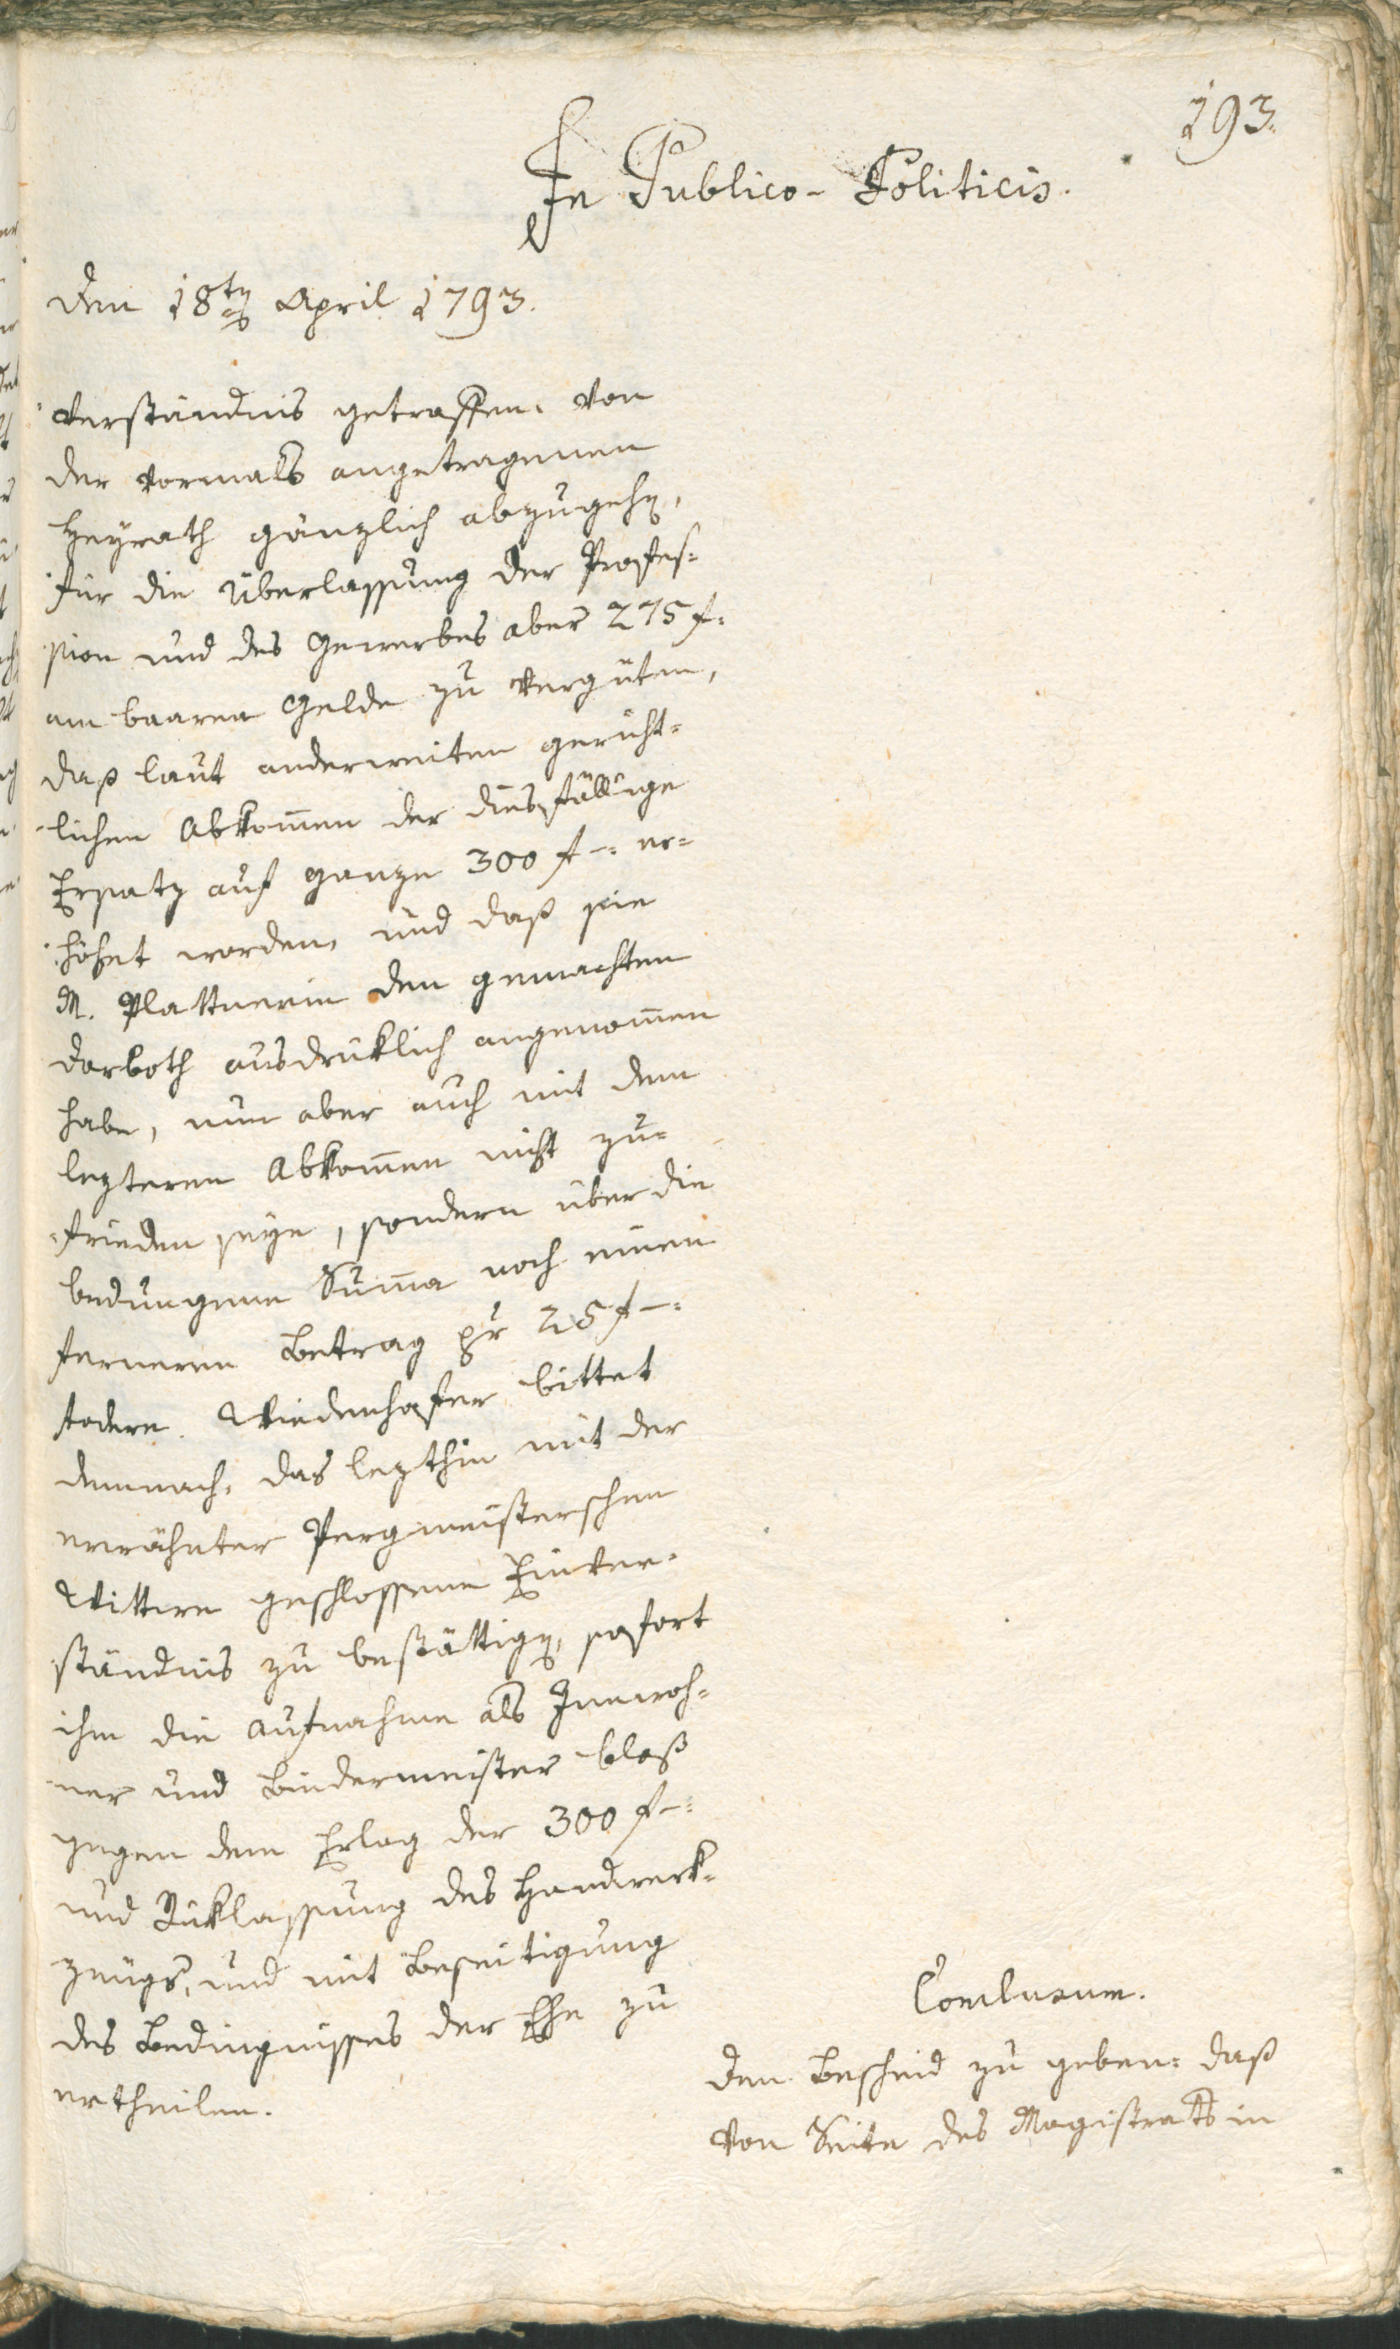 193.
In Publico-Politicis.
den 18ten April 1793.
verständnis getroffen. von
der vormals angetragenen
Heyrath gänzlich abzugehen,
für die Überlassung der Profes=
sion und des Gewerbes aber 275 f.
am baaren Gelde zu vergüten,
daß laut anderweiten gericht=
lichen Abkom̄en der diesfällige
Ersatz auf ganze 300 f –: er=
höhet worden, und daß sie
M. Plattnerin den gemachten
Darboth ausdrüklich angenom̄en
habe, nun aber auch mit dem
lezteren Abkom̄en nicht zu=
frieden seye, sondern über die
bedungene Sum̄a noch einen
ferneren Betrag pr 25 f –:
fodere. Wiedenhofer bittet
demnach, das lezthin mit der
erwähnter Pergmeisterschen
Wittwe geschlossene Einver=
ständnis zu bestättigen, sofort
ihm die Aufnahme als Innwoh=
ner und Bindermeister bloß
gegen dem Erlag der 300 f –:
und Rüklassung des Handwerk=
zeugs, und mit Beseitigung
des Bedingnisses der Ehe zu
ertheilen.
Conclusum.
Den Bescheid zu geben: daß
von Seite des Magistrats in